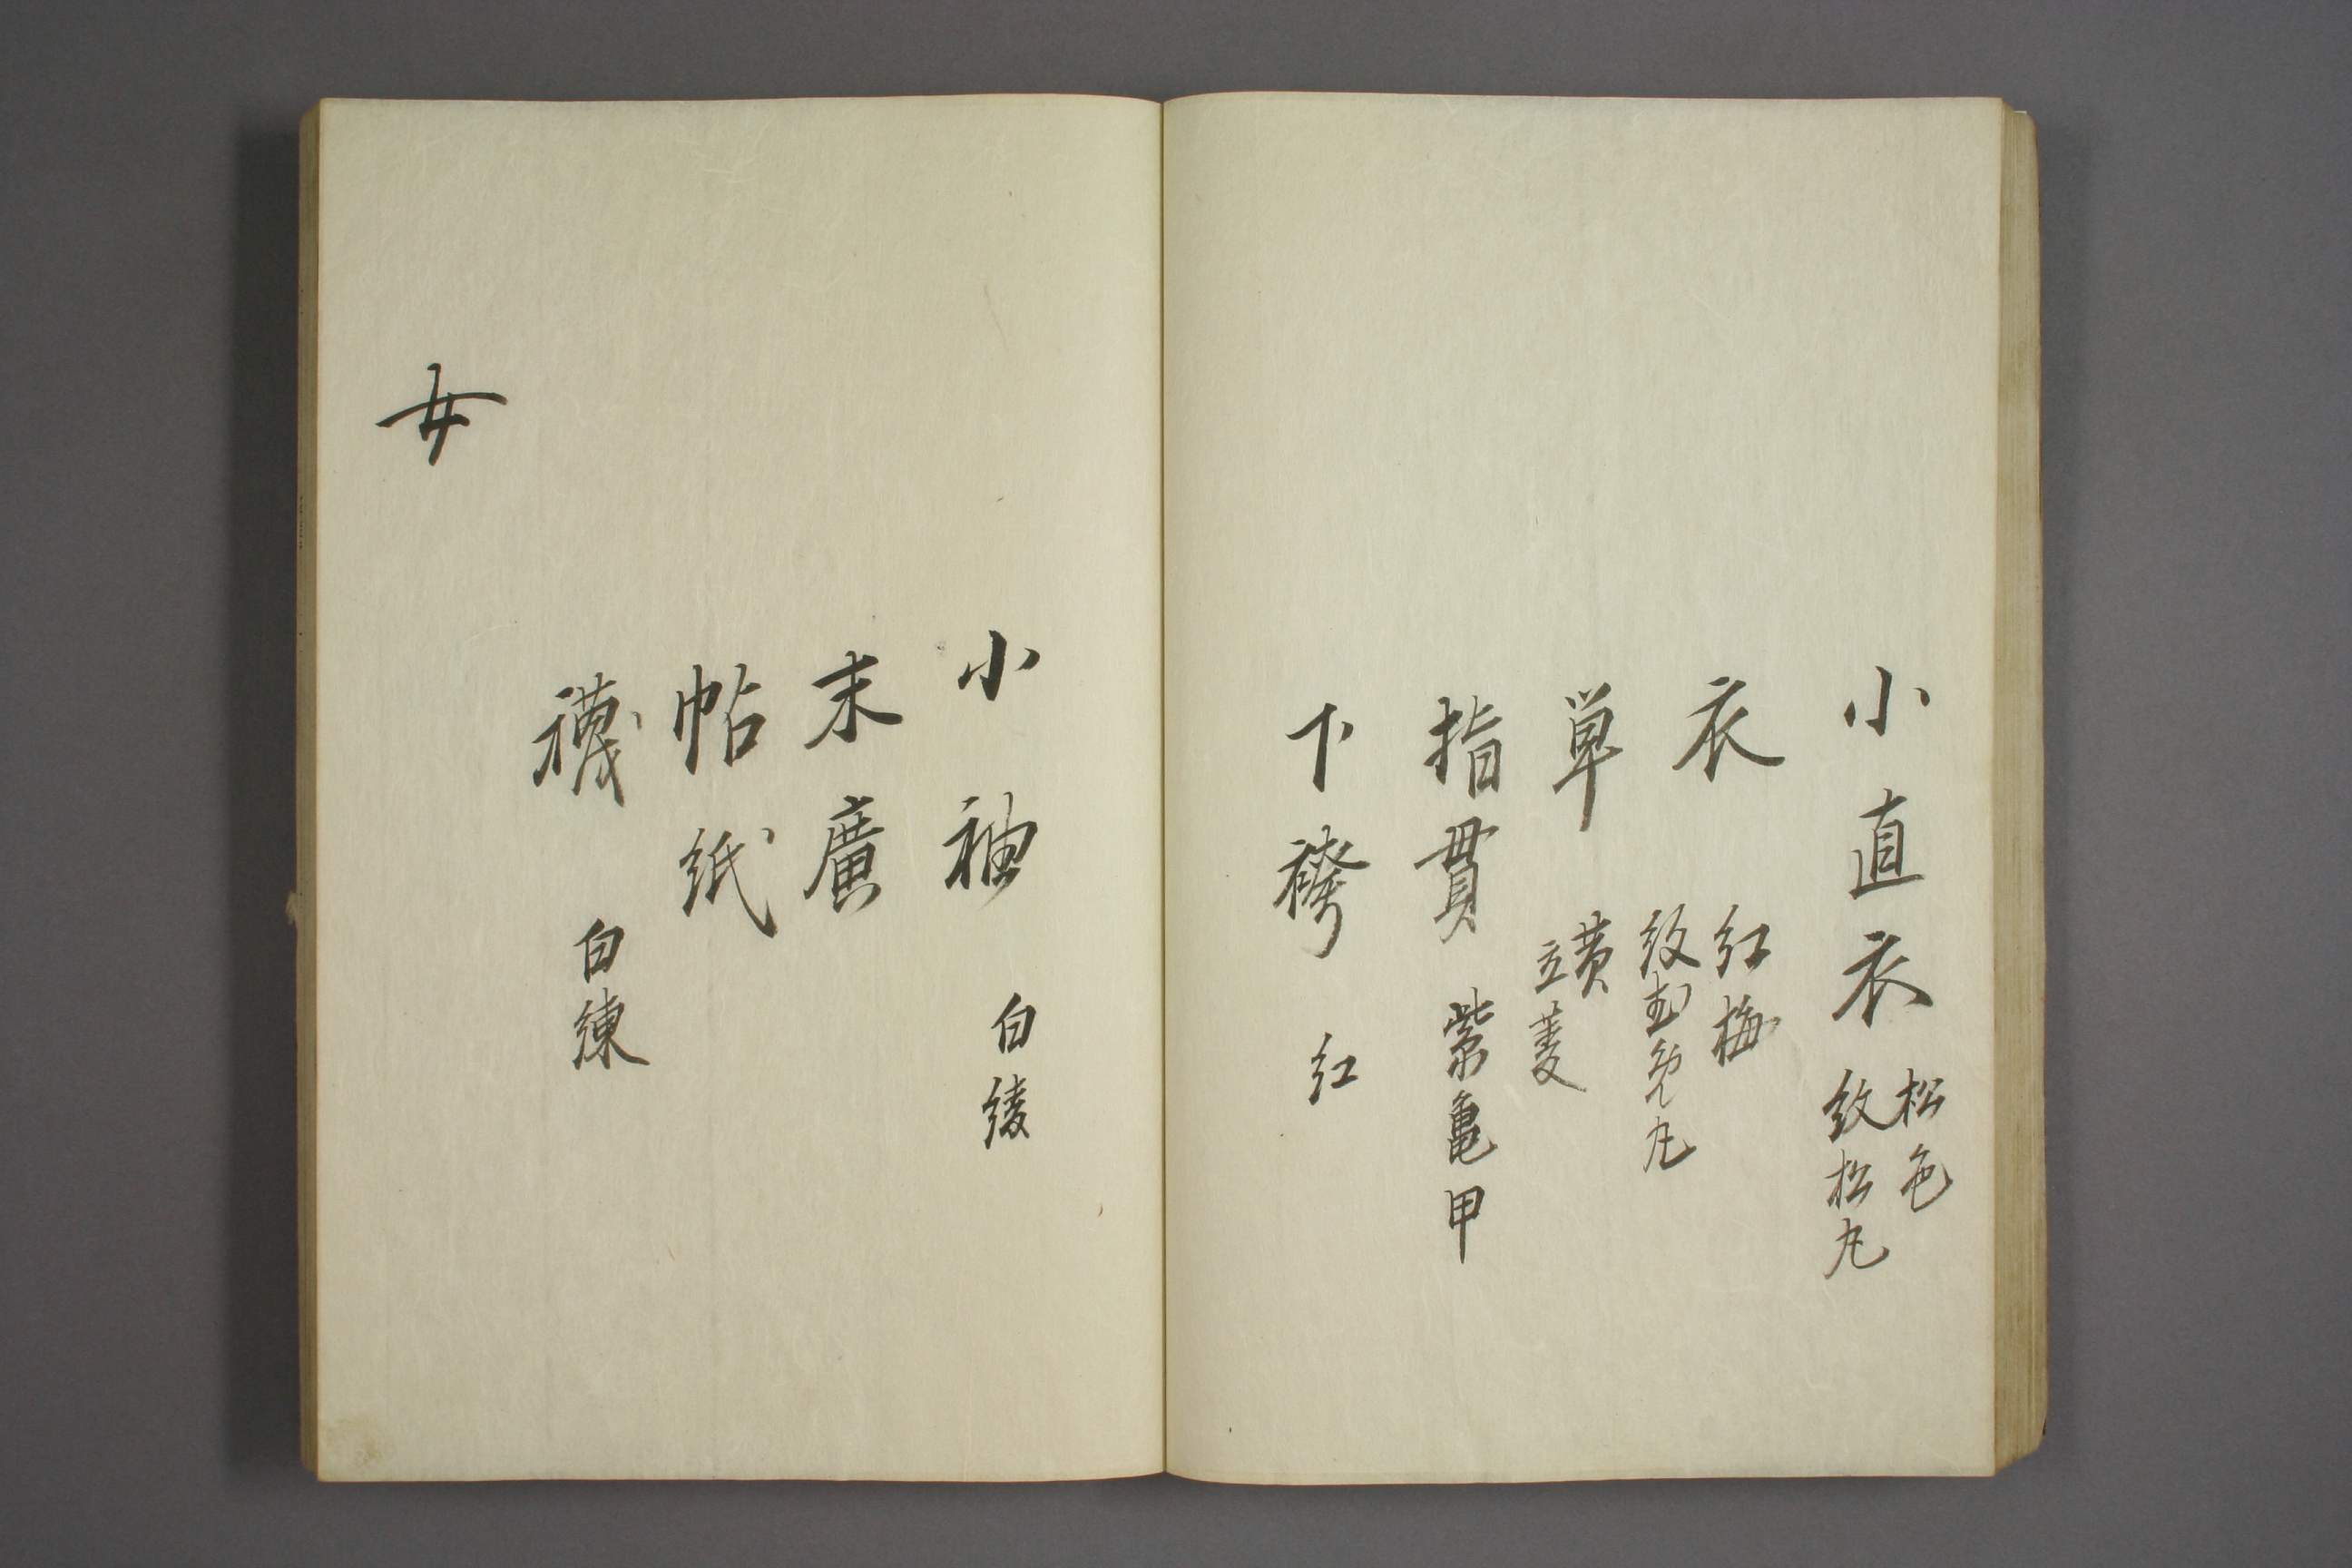 小直衣 松色
紋松丸
衣 紅梅
紋 丸
単 黄
立菱
指貫 紫亀甲
下袴 紅
小袖 白綾
末廣
帖紙
襪 白練
女